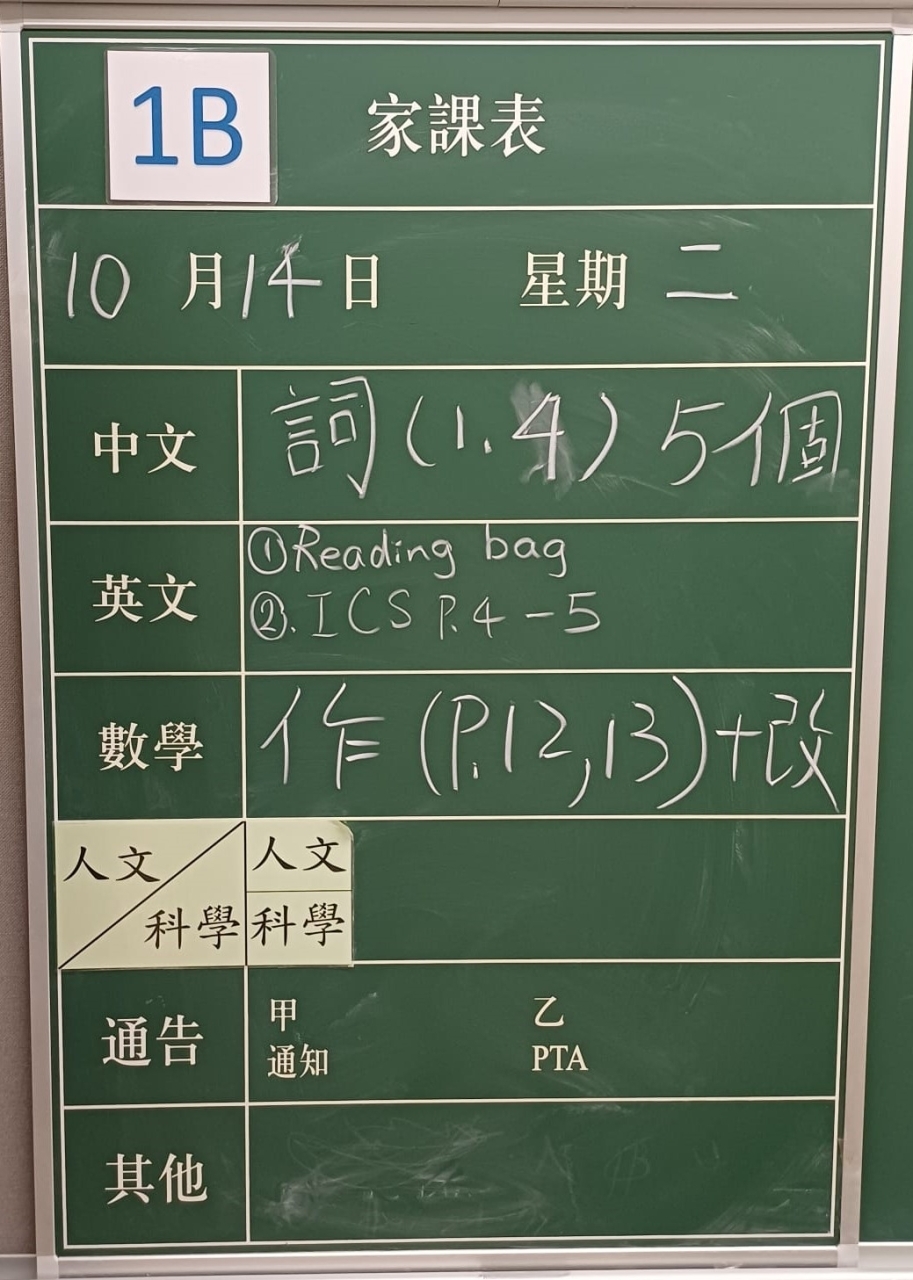 1B 家課表
10月14日 星期二
中文 詞(1.4)5個
英文 ①Reading bag
②.ICS P.4-5
數學 作(P.12,13)+改
人文 人文
科學 科學
通告 甲 乙
通知 PTA
其他